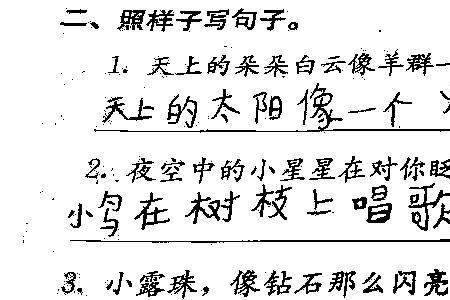 二、照样子写句子。
1. 天上的朵朵白云像羊群一
天上的太阳像一个
2. 夜空中的小星星在对你眨
小鸟在树枝上唱歌
3. 小露珠，像钻石那么闪亮